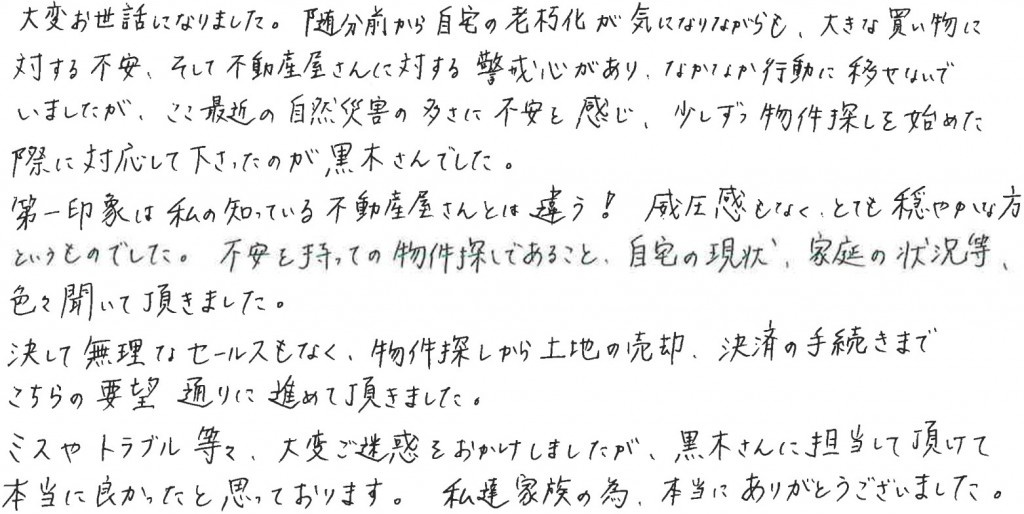 大変お世話になりました。随分前から自宅の老朽化が気になりながらも、大きな買い物に
対する不安、そして不動産屋さんに対する警戒心があり、なかなか行動に移せないで
いましたが、ここ最近の自然災害の多さに不安を感じ、少しずつ物件探しを始めた
際に対応して下さったのが黒木さんでした。
第一印象は私の知っている不動産屋さんとは違う！ 威圧感もなく、とても穏やかな方
というものでした。 不安を持っての物件探しであること、自宅の現状、家庭の状況等、
色々聞いて頂きました。
決して無理なセールスもなく、物件探しから土地の売却、決済の手続きまで
こちらの要望通りに進めて頂きました。
ミスやトラブル等々、大変ご迷惑をおかけしましたが、黒木さんに担当して頂けて
本当に良かったと思っております。 私達家族の為、本当にありがとうございました。